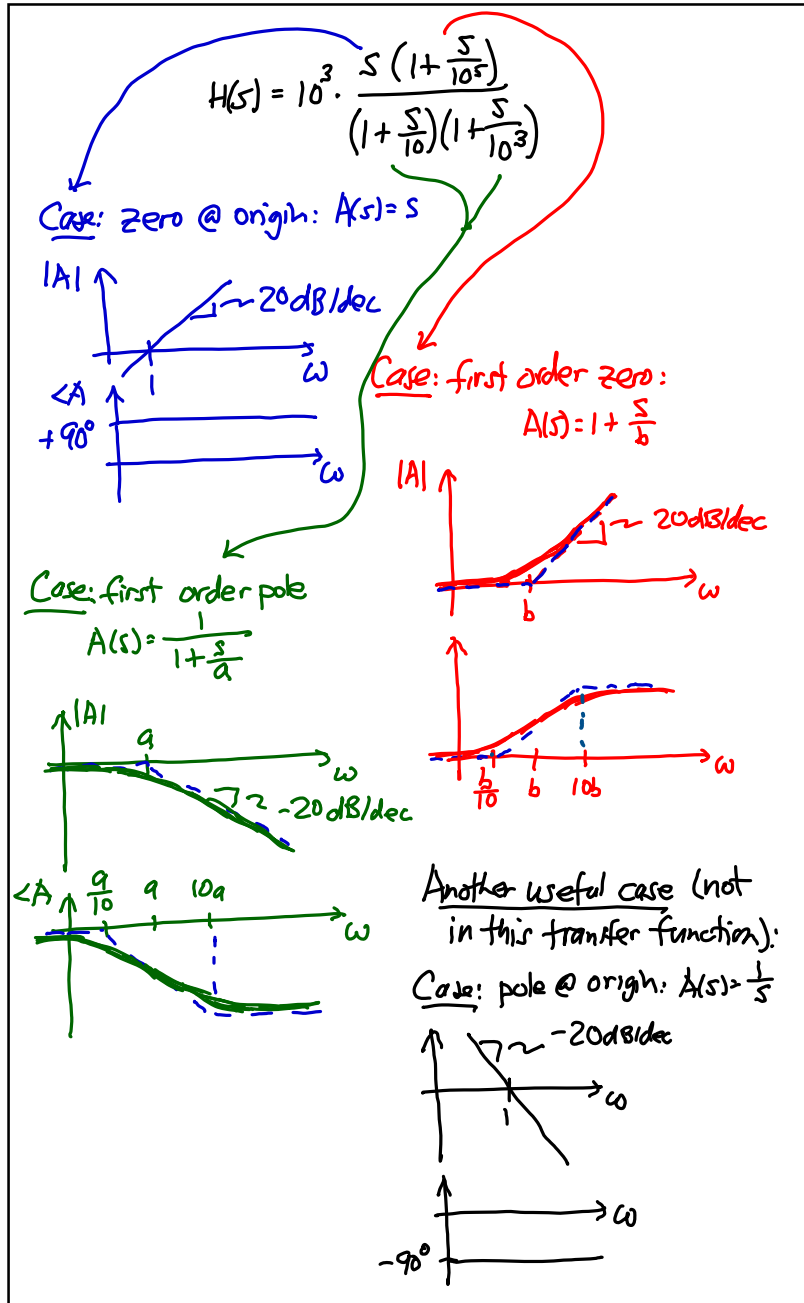 H(s) = 10³ · s(1 + s/10⁵) / (1 + s/10)(1 + s/10³)
Case: zero @ origin: A(s) = s
|A|
~ 20dB/dec
1
ω
<A
+90°
ω
Case: first order zero:
A(s) = 1 + s/b
|A|
~ 20dB/dec
b
ω
b/10
b
10b
ω
Case: first order pole
A(s) = 1/(1 + s/a)
|A|
a
ω
~ -20dB/dec
<A
a/10
a
10a
ω
Another useful case (not
in this transfer function):
Case: pole @ origin: A(s) = 1/s
~ -20dB/dec
1
ω
ω
-90°